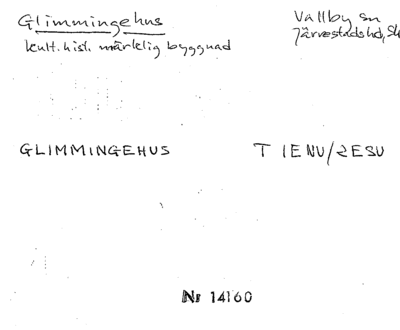 Glimmingehus
kult. hist. märklig byggnad
Vallby sn
Järrestads hd, Sk
GLIMMINGEHUS T 1E NV/2E SV
Nr 14160